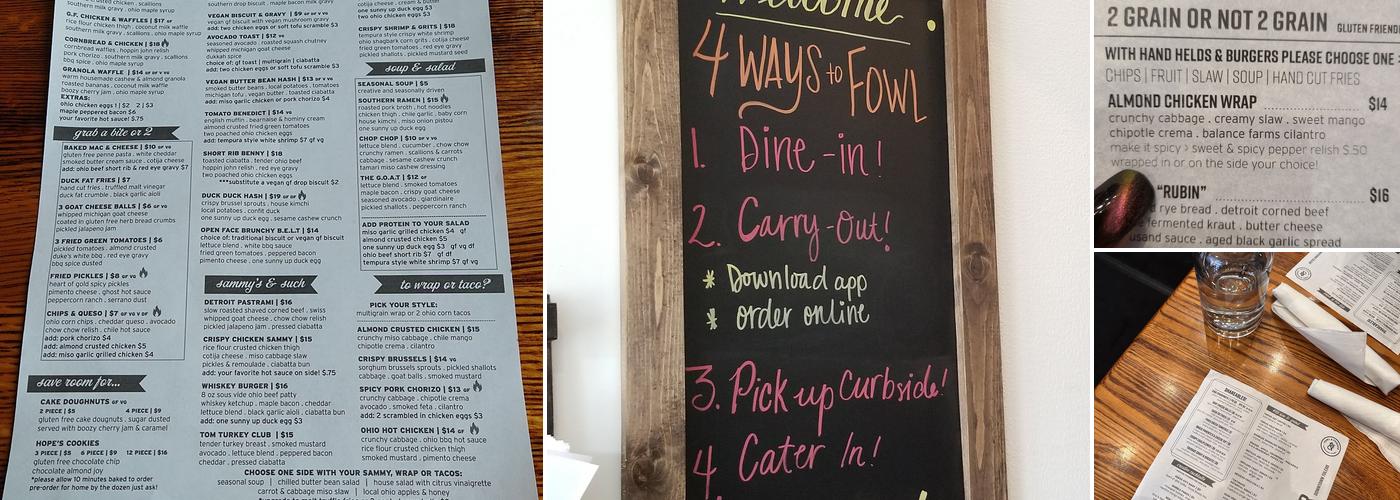 southern milk gravy . ohio maple syrup
G.F. CHICKEN & WAFFLES | $17 GF
rice flour chicken thigh . coconut milk waffle
southern milk gravy . ohio maple syrup
CORNBREAD & CHICKEN | $18
cornbread waffles , hoppin john relish
pork chorizo . southern milk gravy . scallions
bbq spice . ohio maple syrup
GRANOLA WAFFLE | $14 GF V VG
warm housemade cashew & almond granola
roasted bananas . coconut milk waffle
boozy cherry jam . ohio maple syrup
EXTRAS:
ohio chicken eggs 1 | $2 2 | $3
maple peppered bacon $6
your favorite hot sauce! $.75
grab a bite or 2
BAKED MAC & CHEESE | $10 GF VG
gluten free penne pasta . white cheddar
smoked butter cream sauce . cotija cheese
add: ohio beef short rib & red eye gravy $7
DUCK FAT FRIES | $7
hand cut fries . truffled malt vinegar
duck fat crumble . black garlic aioli
3 GOAT CHEESE BALLS | $6 GF VG
whipped michigan goat cheese
coated in gluten free herb bread crumbs
pickled jalapeno jam
3 FRIED GREEN TOMATOES | $6
pickled tomatoes . almond crusted
duke's white bbq . red eye gravy
bbq spice dusted
FRIED PICKLES | $8 GF VG
heart of gold spicy pickles
pimento cheese . ghost hot sauce
peppercorn ranch . serrano dust
CHIPS & QUESO | $7 GF VG V DF
ohio corn chips . cheddar queso . avocado
chow chow relish . chile hot sauce
add: pork chorizo $4
add: almond crusted chicken $5
add: miso garlic grilled chicken $4
save room for...
CAKE DOUGHNUTS GF VG
2 PIECE | $5 4 PIECE | $9
gluten free cake doughnuts . sugar dusted
served with boozy cherry jam & caramel
HOPE'S COOKIES
3 PIECE | $5 6 PIECE | $9 12 PIECE | $16
gluten free chocolate chip
chocolate almond joy
*please allow 10 minutes baked to order
pre-order for home by the dozen just ask!
southern drop biscuit . maple bacon milk gravy
VEGAN BISCUIT & GRAVY | $9 GF DF V VG
vegan gf biscuit with vegan mushroom gravy
add: two chicken eggs or soft tofu scramble $3
AVOCADO TOAST | $12 VG
seasoned avocado . roasted squash chutney
whipped michigan goat cheese
dukkah spice
choice of: gf toast | multigrain | ciabatta
add: two chicken eggs or soft tofu scramble $3
VEGAN BUTTER BEAN HASH | $13 GF V VG
smoked butter beans . local potatoes . tomatoes
michigan tofu . vegan butter . toasted ciabatta
add: miso garlic chicken or pork chorizo $4
TOMATO BENEDICT | $14 VG
english muffin . bearnaise & hominy cream
almond crusted fried green tomatoes
two poached ohio chicken eggs
add: tempura style white shrimp $7
SHORT RIB BENNY | $18
toasted ciabatta . tender ohio beef
hoppin john relish . red eye gravy
two poached ohio chicken eggs
***substitute a vegan gf drop biscuit $2
DUCK DUCK HASH | $19 GF DF
crispy brussel sprouts . house kimchi
local potatoes . confit duck
one sunny up duck egg . sesame cashew crunch
OPEN FACE BRUNCHY B.E.L.T | $14
choice of: traditional biscuit or vegan gf biscuit
lettuce blend . white bbq sauce
ohio fried green tomatoes . peppered bacon
pimento cheese . one sunny up duck egg
sammy's & such
DETROIT PASTRAMI | $16
slow roasted shaved corned beef . swiss
whipped goat cheese . chow chow relish
pickled jalapeno jam . pressed ciabatta
CRISPY CHICKEN SAMMY | $15
rice flour crusted chicken thigh
cotija cheese . miso cabbage slaw
pickles & remoulade . ciabatta bun
add: your favorite hot sauce on side! $.75
WHISKEY BURGER | $16
8 oz sous vide ohio beef patty
whiskey ketchup . maple bacon . cheddar
lettuce blend . black garlic aioli . ciabatta bun
add: one sunny up duck egg $3
TOM TURKEY CLUB | $15
tender turkey breast . smoked mustard
avocado . lettuce blend . peppered bacon
cheddar . pressed ciabatta
cotija cheese . cream & butter
one sunny up duck egg $3
two ohio chicken eggs $3
CRISPY SHRIMP & GRITS | $18
tempura style crispy white shrimp
ohio shagbark corn grits . cotija cheese
fried green tomatoes . red eye gravy
pickled shallots . pickled mustard seed
soup & salad
SEASONAL SOUP | $5
creative and seasonally driven
SOUTHERN RAMEN | $15
roasted pork broth . hot noodles
chicken thigh . chile garlic . baby corn
house kimchi . miso onion pistou
one sunny up duck egg
CHOP CHOP | $10 GF V VG
lettuce blend . cucumber . chow chow
crunchy ramen . scallions & carrots
cabbage . sesame cashew crunch
tamari miso cashew dressing
THE G.O.A.T | $12 GF
lettuce blend . smoked tomatoes
maple bacon . crispy goat cheese
seasoned avocado . giardinaire
pickled shallots . peppercorn ranch
ADD PROTEIN TO YOUR SALAD
miso garlic grilled chicken $4 gf
almond crusted chicken $5
one sunny up duck egg $3 gf vg df
ohio beef short rib $7 gf df
tempura style white shrimp $7 gf vg
to wrap or taco?
PICK YOUR STYLE:
multigrain wrap or 2 ohio corn tacos
ALMOND CRUSTED CHICKEN | $15
crunchy miso cabbage . chile mango
chipotle crema . cilantro
CRISPY BRUSSELS | $14 VG
sorghum brussels sprouts . pickled shallots
cabbage . goat balls . smoked mustard
SPICY PORK CHORIZO | $13 GF
crunchy cabbage . chipotle crema
avocado . smoked feta . cilantro
add: 2 scrambled in chicken eggs $3
OHIO HOT CHICKEN | $14 GF
crunchy cabbage . ohio bbq hot sauce
rice flour crusted chicken thigh
smoked mustard . pimento cheese
CHOOSE ONE SIDE WITH YOUR SAMMY, WRAP OR TACOS:
seasonal soup | chilled butter bean salad | house salad with citrus vinaigrette
carrot & cabbage miso slaw | local ohio apples & honey
Welcome
4 WAYS to FOWL
1. Dine-in!
2. Carry-Out!
* Download app
* order online
3. Pick up Curbside!
4 Cater In!
2 GRAIN OR NOT 2 GRAIN GLUTEN FRIENDL
WITH HAND HELDS & BURGERS PLEASE CHOOSE ONE
CHIPS | FRUIT | SLAW | SOUP | HAND CUT FRIES
ALMOND CHICKEN WRAP $14
crunchy cabbage . creamy slaw . sweet mango
chipotle crema . balance farms cilantro
make it spicy > sweet & spicy pepper relish $.50
wrapped in or on the side your choice!
"RUBIN" $16
rye bread . detroit corned beef
fermented kraut . butter cheese
usand sauce . aged black garlic spread